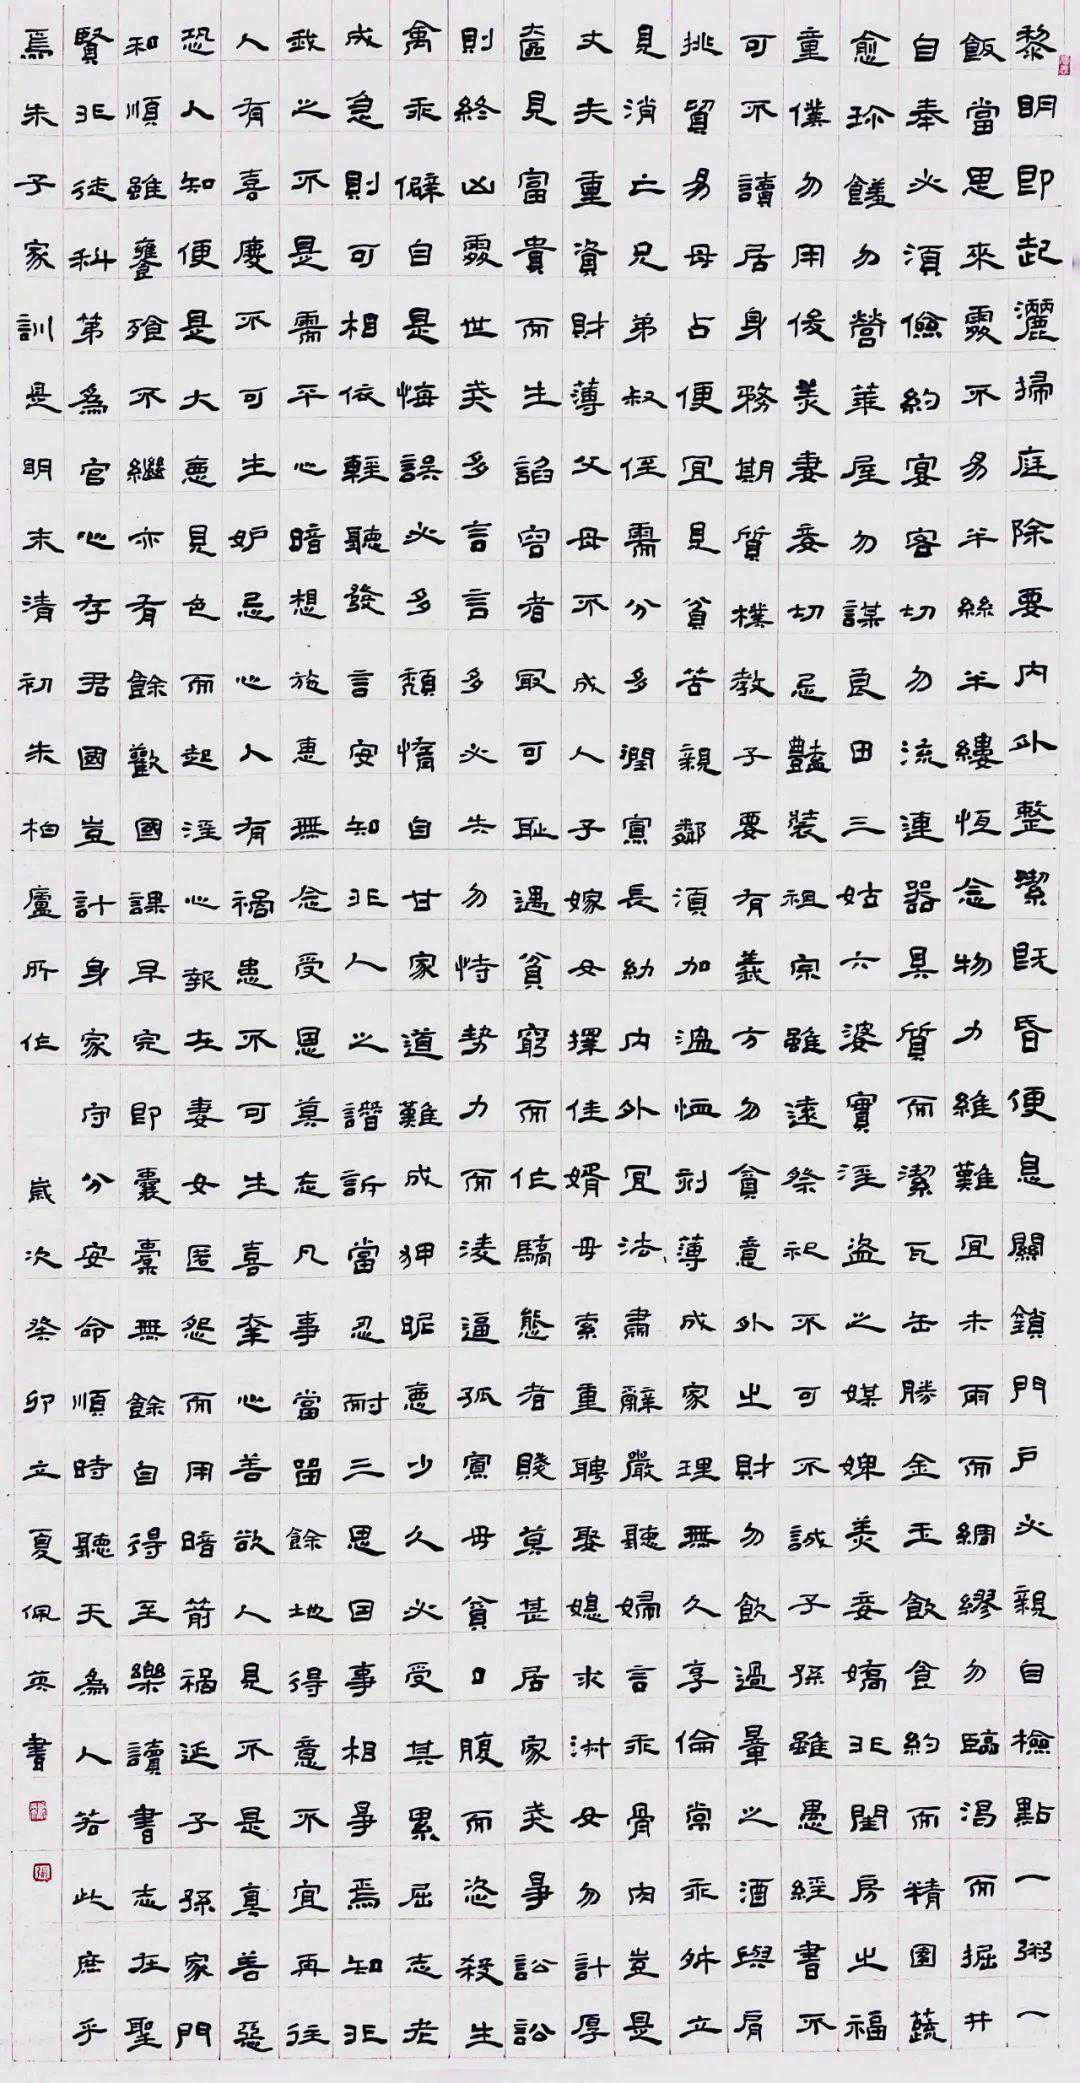 黎明即起灑掃庭除要內外整潔既昏便息關鎖門戶必親自檢點一粥一
飯當思來處不易半絲半縷恆念物力維難宜未雨而綢繆勿臨渴而掘井
自奉必須儉約宴客切勿流連器具質而潔瓦缶勝金玉飲食約而精園蔬
愈珍饈勿營華屋勿謀良田三姑六婆實淫盜之媒婢美妾嬌非閨房之福
童僕勿用俊美妻妾切忌豔裝祖宗雖遠祭祀不可不誠子孫雖愚經書不
可不讀居身務期質樸教子要有義方勿貪意外之財勿飲過量之酒與肩
挑貿易毋占便宜見貧苦親鄰須加溫恤刻薄成家理無久享倫常乖舛立
見消亡兄弟叔侄需分多潤寡長幼內外宜法肅辭嚴聽婦言乖骨肉豈是
丈夫重資財薄父母不成人子嫁女擇佳婿毋索重聘娶媳求淑女勿計厚
奩見富貴而生諂容者最可恥遇貧窮而作驕態者賤莫甚居家戒爭訟訟
則終凶處世戒多言言多必失勿恃勢力而淩逼孤寡毋貪口腹而恣殺生
禽乖僻自是悔誤必多頹惰自甘家道難成狎昵惡少久必受其累屈志老
成急則可相依輕聽發言安知非人之譖訴當忍耐三思因事相爭焉知非
我之不是需平心暗想施惠無念受恩莫忘凡事當留餘地得意不宜再往
人有喜慶不可生妒忌心人有禍患不可生喜幸心善欲人見不是真善惡
恐人知便是大惡見色而起淫心報在妻女匿怨而用暗箭禍延子孫家門
和順雖饔飧不繼亦有餘歡國課早完即囊橐無餘自得至樂讀書志在聖
賢非徒科第為官心存君國豈計身家守分安命順時聽天為人若此庶乎
焉朱子家訓是明末清初朱柏廬所作 歲次癸卯立夏佩英書